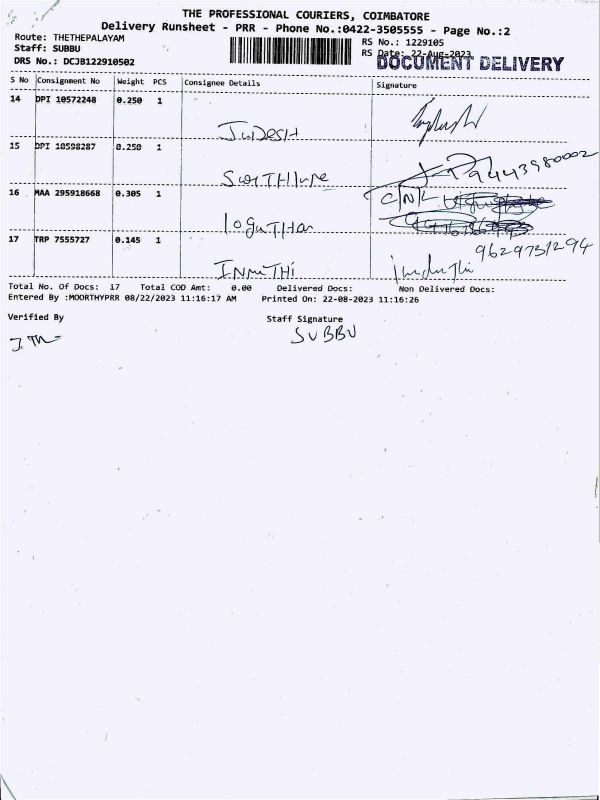 THE PROFESSIONAL COURIERS, COIMBATORE
Delivery Runsheet - PRR - Phone No.:0422-3505555 - Page No.:2
Route: THETHEPALAYAM
RS No.: 1229105
Staff: SUBBU
RS Date: 22-Aug-2023
DRS No.: DCJB122910502
DOCUMENT DELIVERY
S No Consignment No Weight PCS Consignee Details Signature
14 DPI 10572248 0.250 1
JuDesH
15 DPI 10598287 0.250 1
9443980002
16 MAA 295918668 0.305 1
C/N/L
LoguTHan
17 TRP 7555727 0.145 1
9629731294
INMuTHi
Total No. Of Docs: 17 Total COD Amt: 0.00 Delivered Docs: Non Delivered Docs:
Entered By :MOORTHYPRR 08/22/2023 11:16:17 AM Printed On: 22-08-2023 11:16:26
Verified By Staff Signature
SUBBU